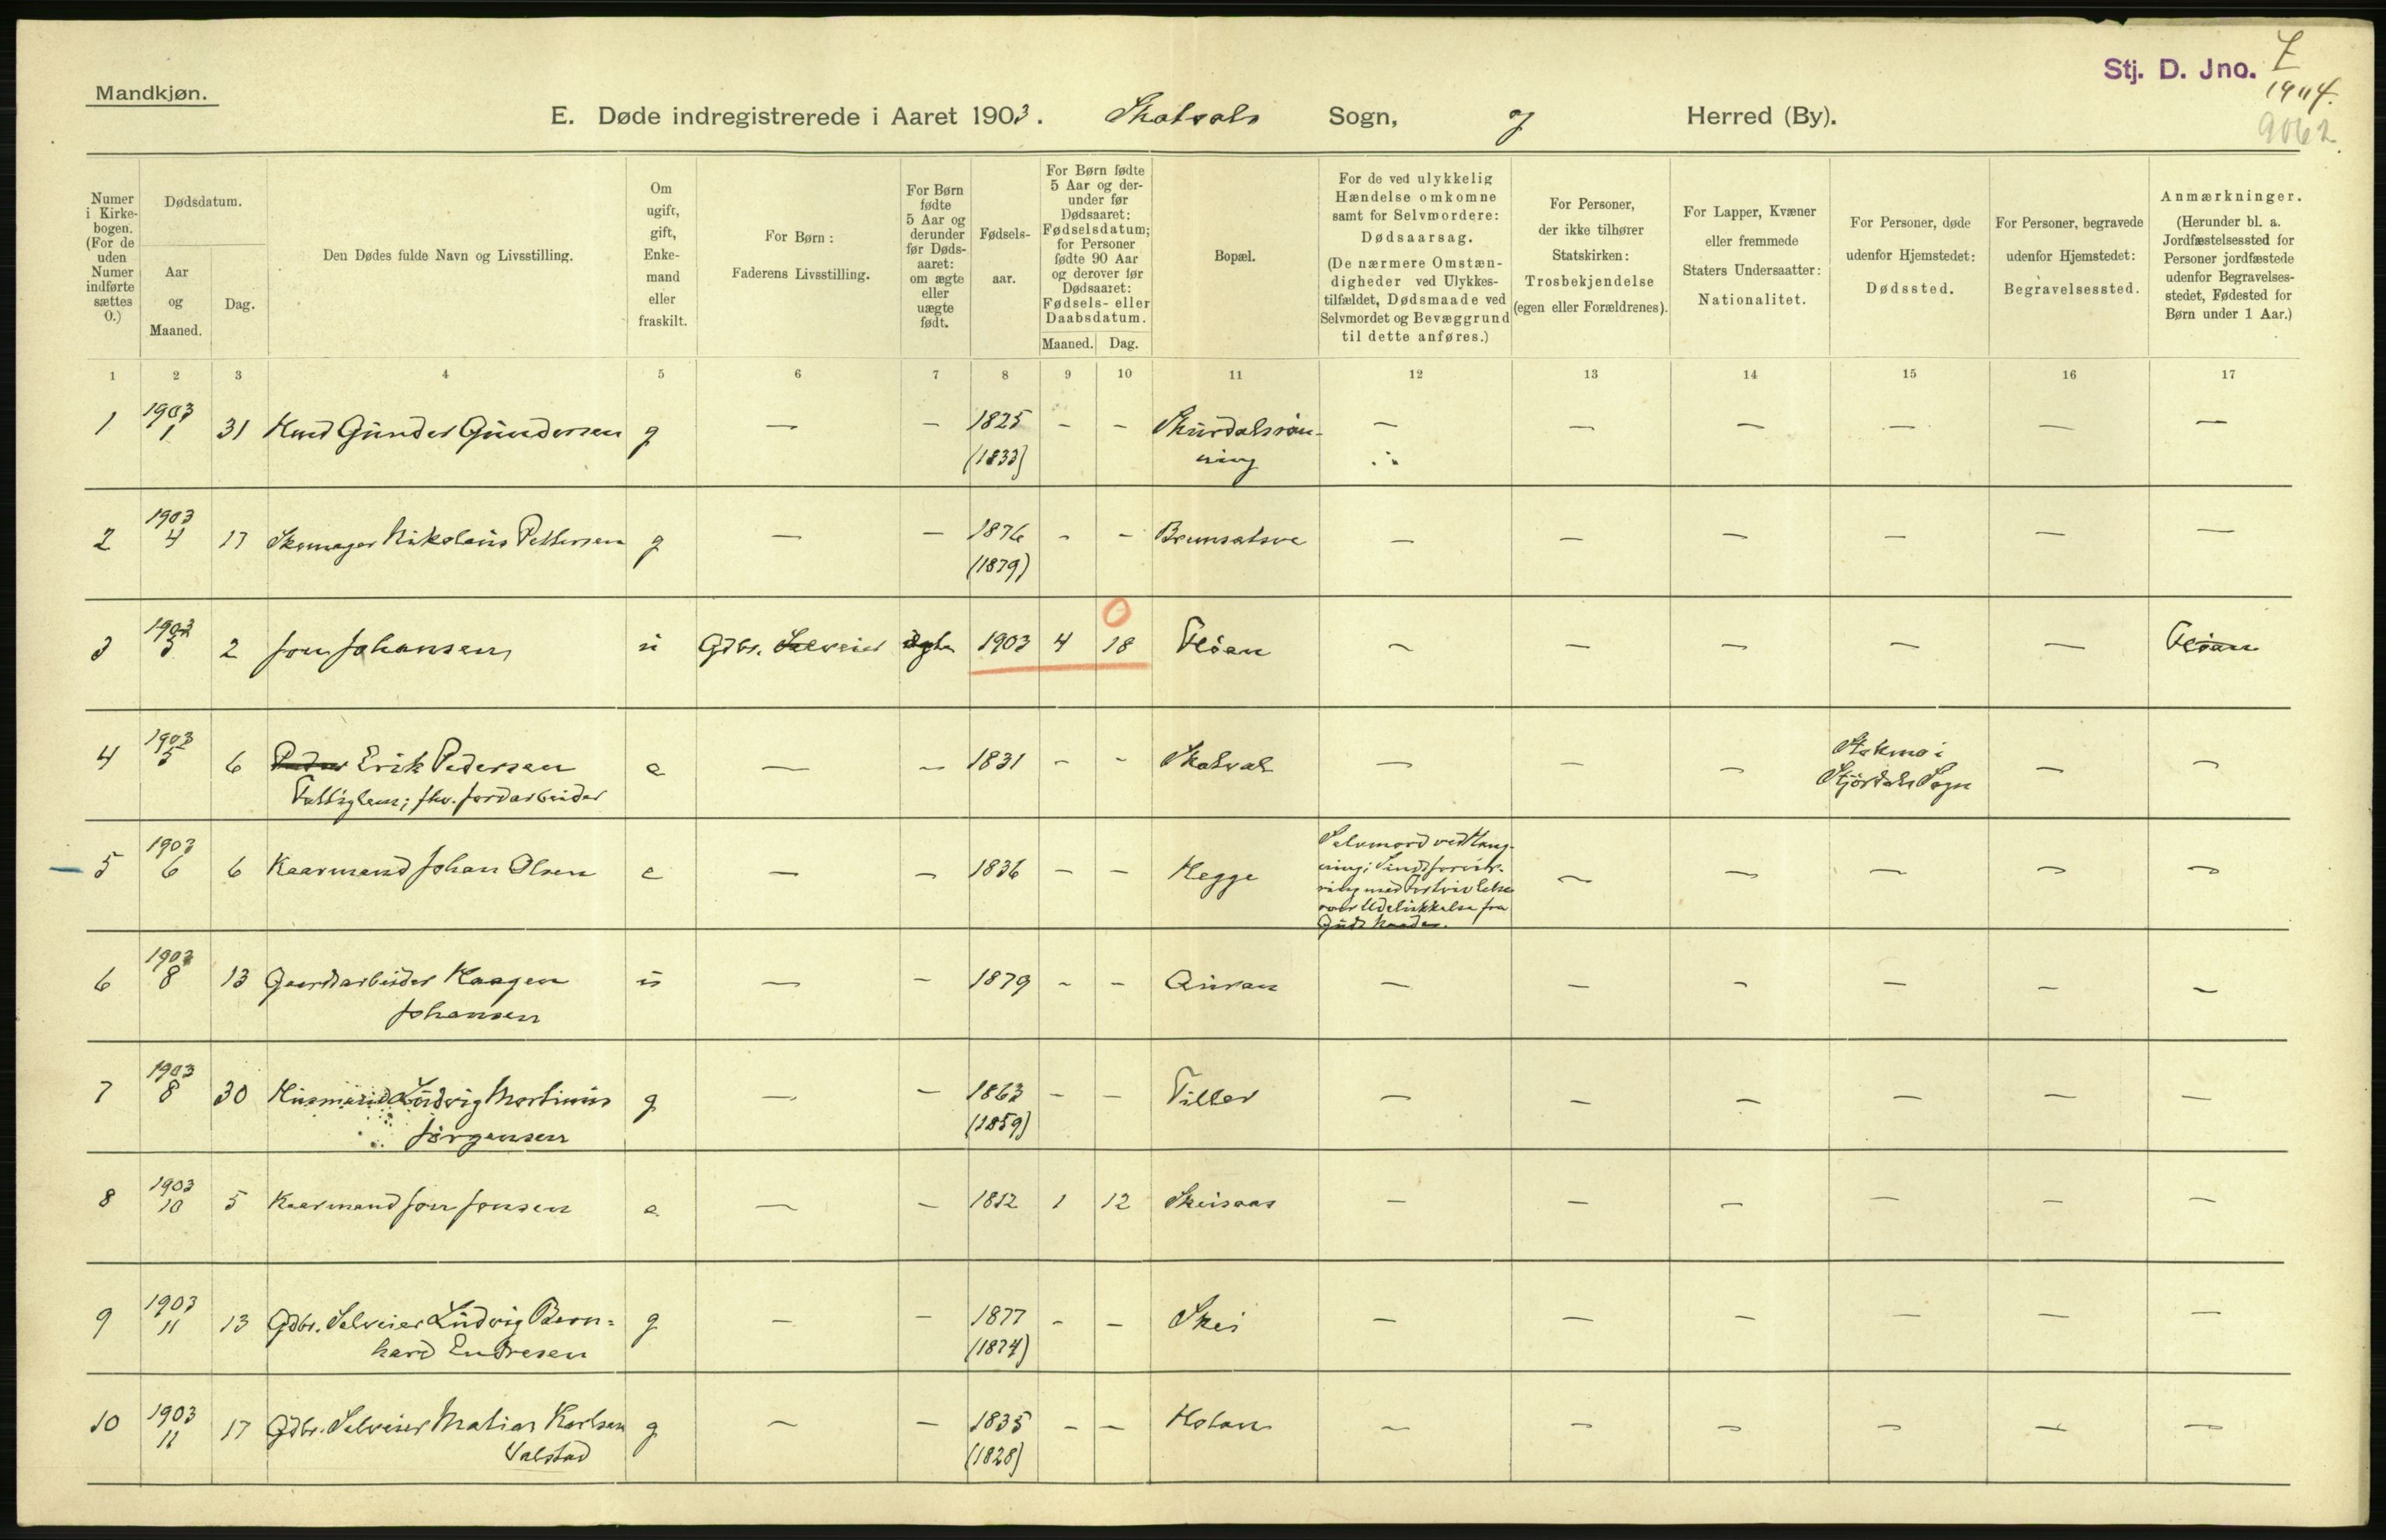 Mandkjøn.
Stj. D. Jno. 7
1904.
9062.
E. Døde indregistrerede i Aaret 1903. Skatvals Sogn, Herred (By).
Numer i Kirkebogen. (For de uden Numer indførte sættes 0.)
Dødsdatum.
Aar og Maaned.
Dag.
Den Dødes fulde Navn og Livsstilling.
Om ugift, gift, Enkemand eller fraskilt.
For Børn: Faderens Livsstilling.
For Børn fødte 5 Aar og derunder før Dødsaaret: om ægte eller uægte født.
Fødselsaar.
For Børn fødte 5 Aar og derunder før Dødsaaret: Fødselsdatum; for Personer fødte 90 Aar og derover før Dødsaaret: Fødsels- eller Daabsdatum.
Maaned. Dag.
Bopæl.
For de ved ulykkelig Hændelse omkomne samt for Selvmordere: Dødsaarsag. (De nærmere Omstændigheder ved Ulykkestilfældet, Dødsmaade ved Selvmordet og Bevæggrund til dette anføres.)
For Personer, der ikke tilhører Statskirken: Trosbekjendelse (egen eller Forældrenes).
For Lapper, Kvæner eller fremmede Staters Undersaatter: Nationalitet.
For Personer, døde udenfor Hjemstedet: Dødssted.
For Personer, begravede udenfor Hjemstedet: Begravelsessted.
Anmærkninger. (Herunder bl. a. Jordfæstelsessted for Personer jordfæstede udenfor Begravelsesstedet, Fødested for Børn under 1 Aar.)
1 2 3 4 5 6 7 8 9 10 11 12 13 14 15 16 17
1 1903 1 31 Gunder Gundersen g — — 1825 (1833) - - Skurdalsrønning — — — — — —
2 1903 4 17 Skomager Nikolaus Pettersen g — — 1876 (1879) - - — — — — — —
3 1903 5 2 Jon Johansen u Gdbr. Selveier ægte 1903 4 18 Fløan — — — — — Fløan
4 1903 5 6 Peder Erik Pedersen e — — 1831 - - Skatval — — — Stokmo i Stjørdals Sogn — —
Fattiglem; fhv. Jordarbeider
5 1903 6 6 Kaarmand Johan Olsen e — — 1836 - - Hegge Selvmord ved Hængning; Sindsforvirring med Fortvivlelse over Udelukkelse fra Guds Naade. — — — — —
6 1903 8 13 Gaardarbeider Haagen Johansen u — — 1879 - - Auran — — — — — —
7 1903 8 30 Husmand Ludvig Martinus Jørgensen g — — 1863 (1859) - - Tiller — — — — — —
8 1903 10 5 Kaarmand Jon Jonsen e — — 1812 1 12 Skeisaas — — — — — —
9 1903 11 13 Gdbr. Selveier Ludvig Bernhard Endresen g — — 1877 (1874) - - Skei — — — — — —
10 1903 11 17 Gdbr. Selveier Matias Karlsen Valstad g — — 1835 (1828) - - Holan — — — — — —